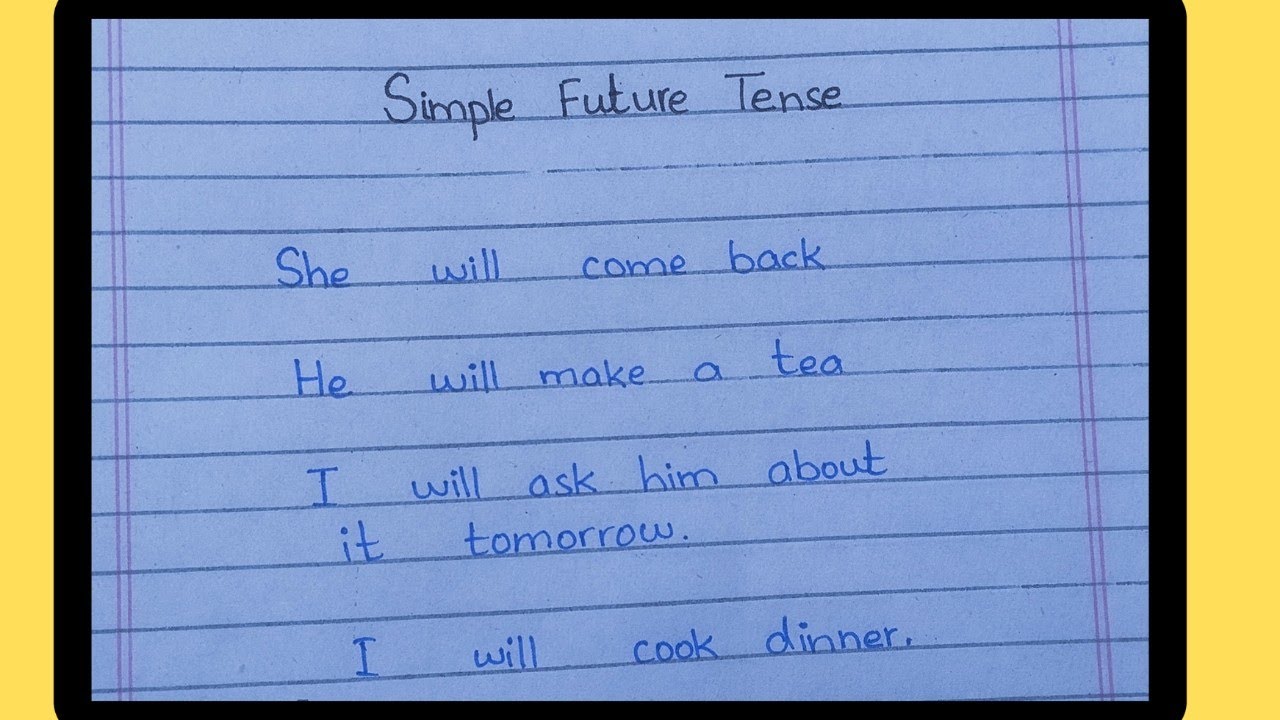 Simple Future Tense
She will come back
He will make a tea
I will ask him about
it tomorrow.
I will cook dinner.